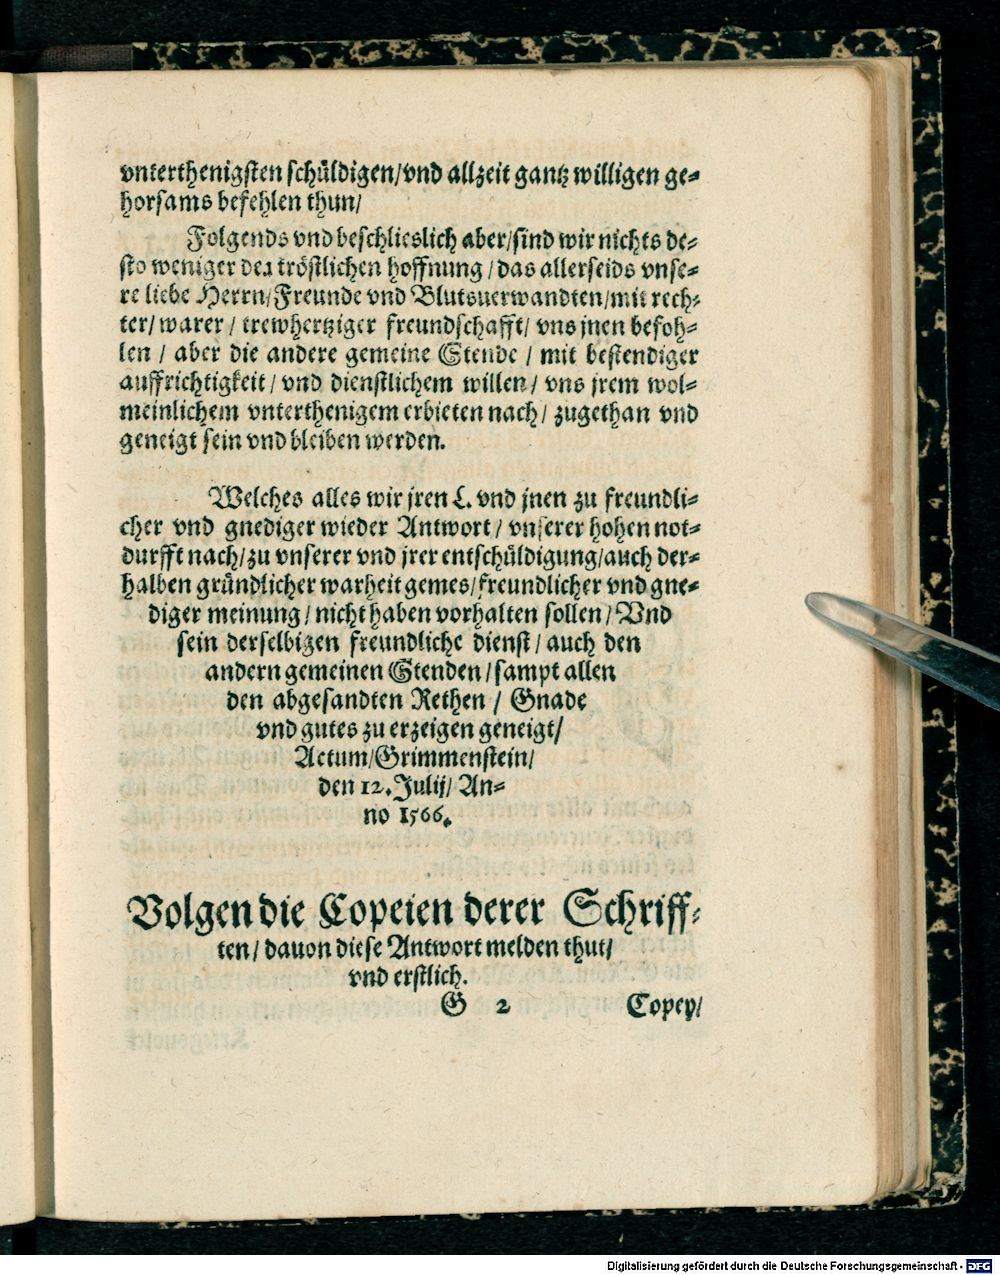 vnterthenigsten schüldigen/vnd allzeit gantz willigen ge-
horsams befehlen thun/
Folgends vnd beschlieslich aber/sind wir nichts de-
sto weniger der tröstlichen hoffnung/das allerseids vnse-
re liebe Herrn/Freunde vnd Blutsuerwandten/mit rech-
ter/warer/trewhertziger freundschafft/vns jnen befoh-
len/aber die andere gemeine Stende/mit bestendiger
auffrichtigkeit/vnd dienstlichem willen/vns jrem wol-
meinlichem vnterthenigem erbieten nach/zugethan vnd
geneigt sein vnd bleiben werden.
Welches alles wir jren L. vnd jnen zu freundli-
cher vnd gnediger wieder Antwort/vnserer hohen not-
durfft nach/zu vnserer vnd jrer entschüldigung/auch der-
halben gründlicher warheit gemes/freundlicher vnd gne-
diger meinung/nicht haben vorhalten sollen/Vnd
sein derselbigen freundliche dienst/auch den
andern gemeinen Stenden/sampt allen
den abgesandten Rethen/Gnade
vnd gutes zu erzeigen geneigt/
Actum/Grimmenstein/
den 12. Julij/An-
no 1566.
Volgen die Copeien derer Schriff-
ten/dauon diese Antwort melden thut/
vnd erstlich.
G 2 Copey/
Digitalisierung gefördert durch die Deutsche Forschungsgemeinschaft - DFG